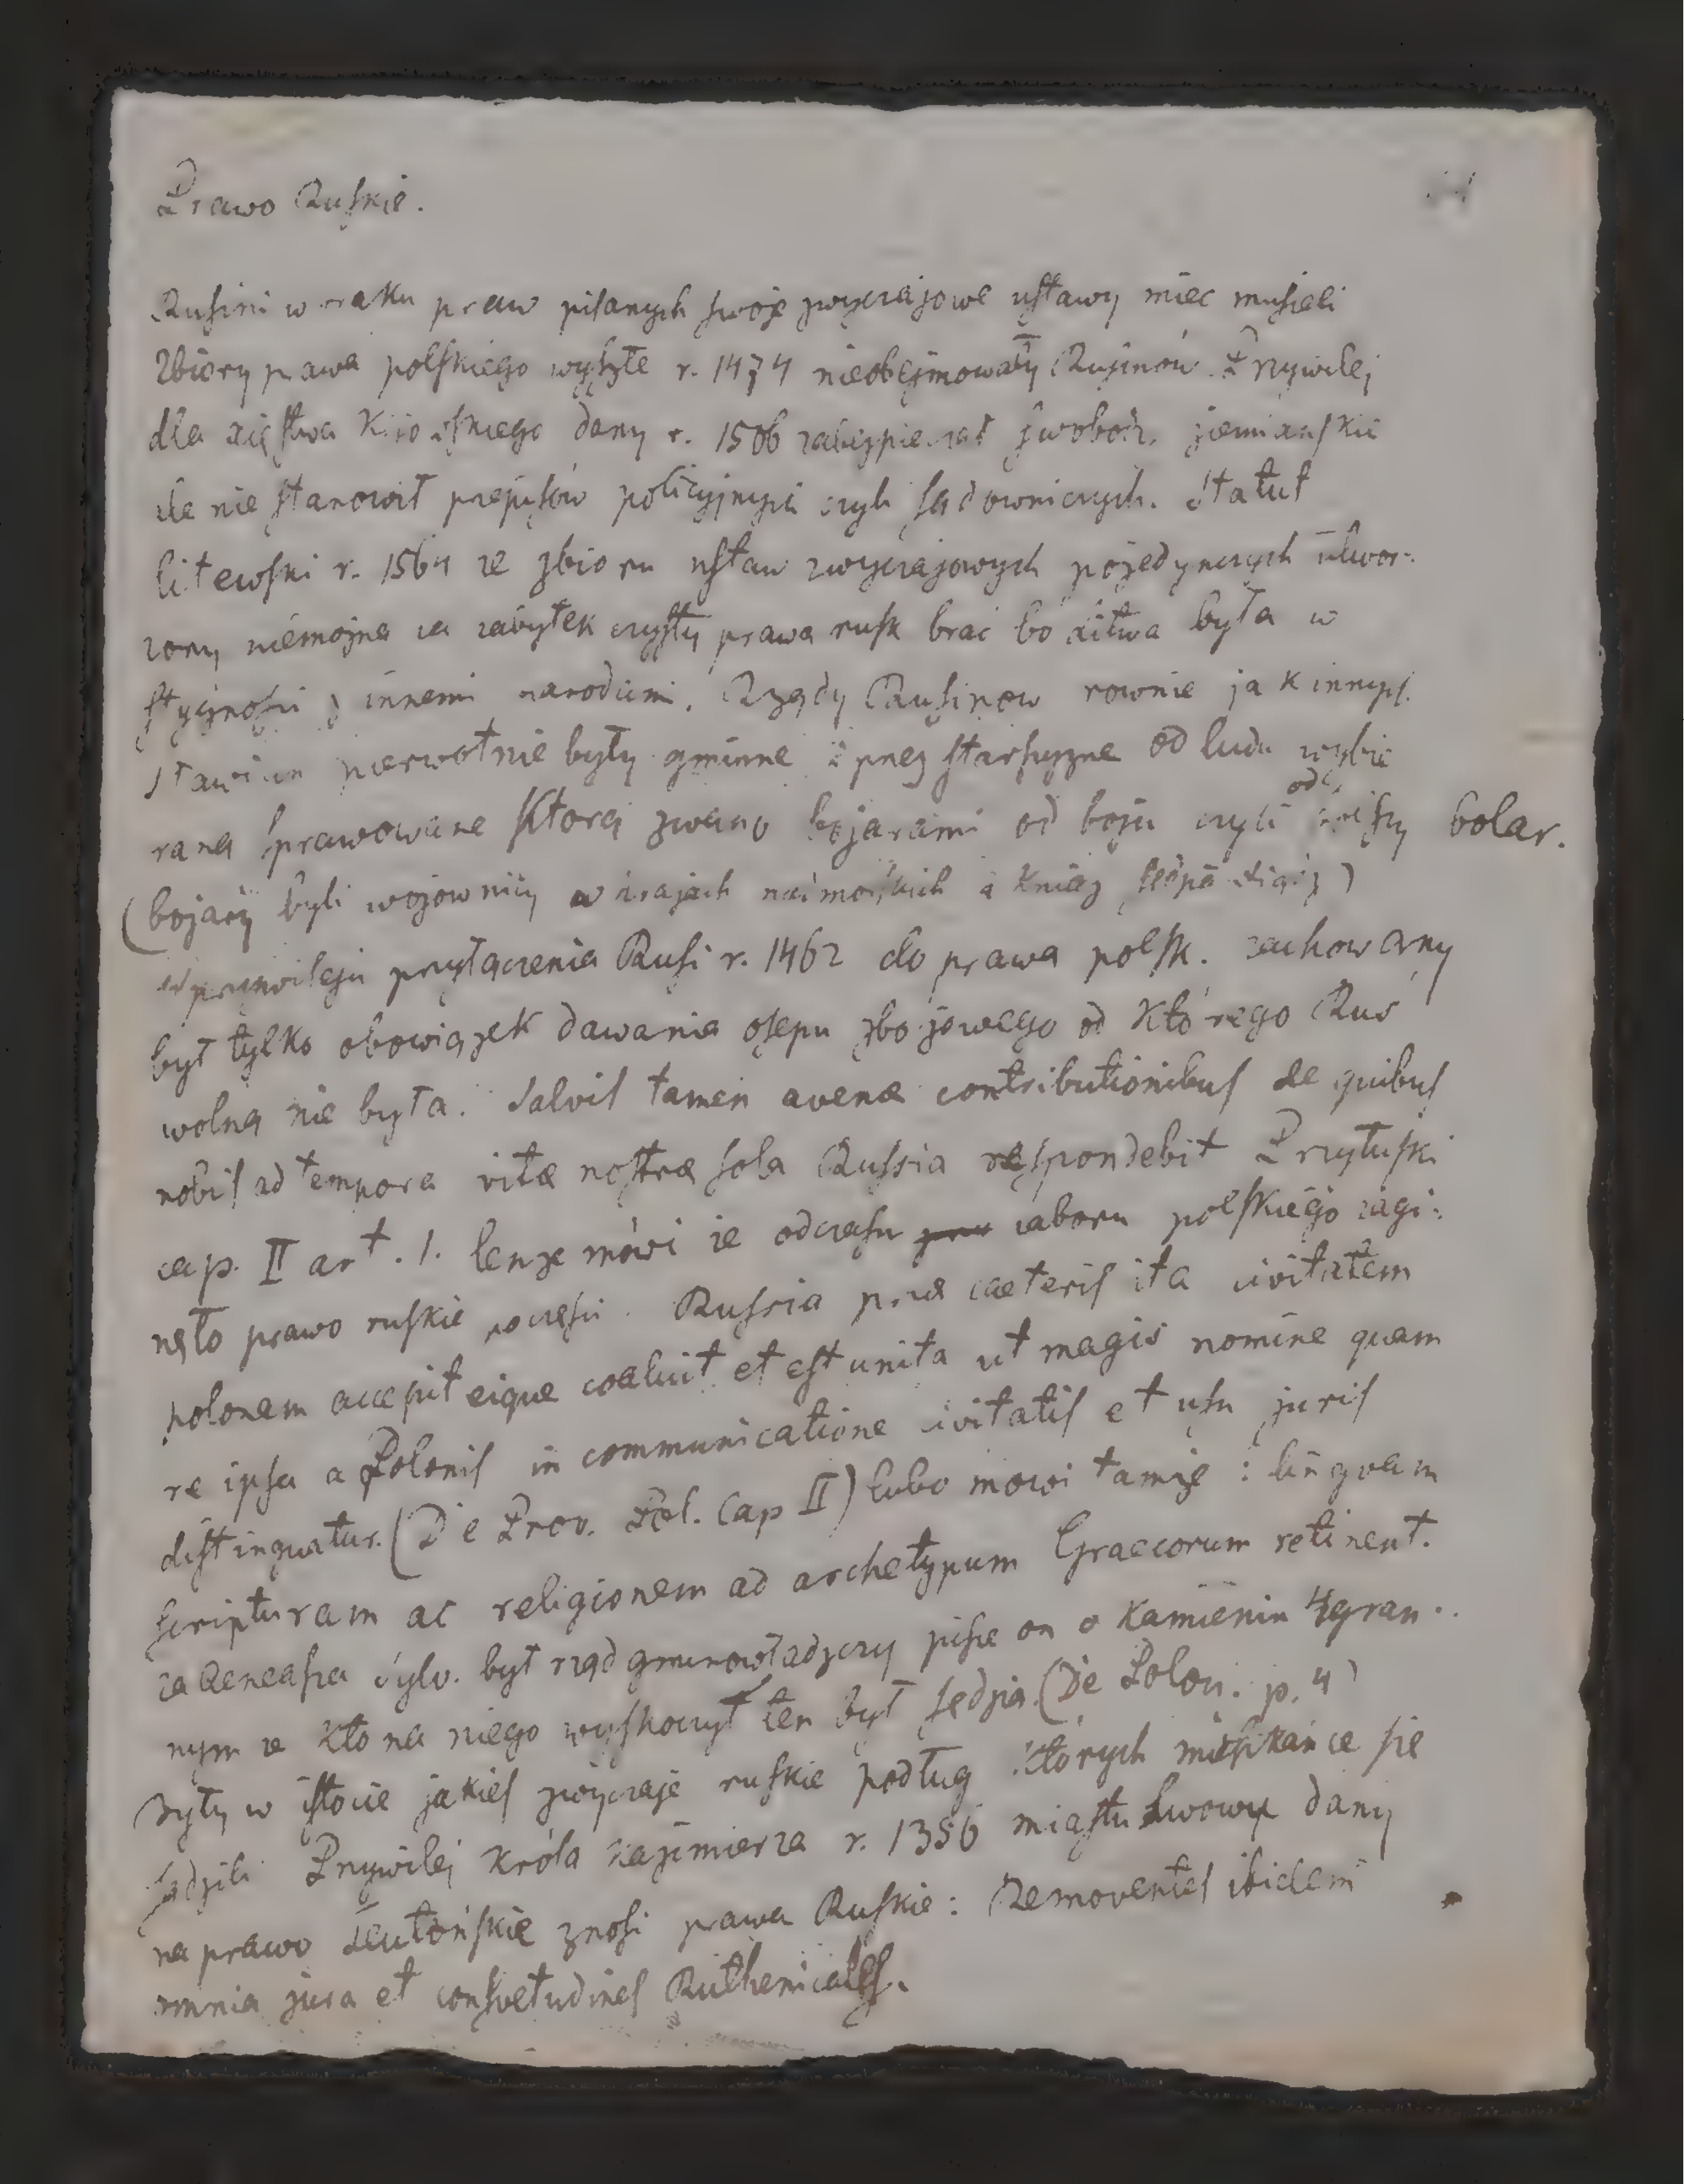 Prawo Ruskie.
Rusini w braku praw pisanych swoje zwyczajowe ustawy miec musieli
Zbiory prawa polskiego wyszłe r. 1474 nieobejmowały Rusinów. Przywilej
dla xięstwa Kijowskiego dany r. 1506 zabezpieczał swobod. ziemianskie
ale nie stanowił przepisów policyjnych czyli sądowniczych. Statut
litewski r. 1564 ze zbioru ustaw zwyczajowych pojedynczych utwor-
zony niemożna za zabytek czysty prawa rusk brać bo Litwa była w
styczności z innemi narodami. Rządy Rusinow rownie jak innych
Stawian pierwotnie były gminne i przez starszyznę od ludu wybie
raną sprawowane Którą zwano bojarami od boju czyli od bolar.
(bojary byli wojownicy w krajach i Kniaz
przywileju przyłączenia Rusi r. 1462 do prawa polsk. zachowany
był tylko obowiązek dawania osepu zbożowego od którego Ruś
wolną nie była. Salvis tamen avenæ contributionibus de quibus
nobis ad tempora vitæ nostræ sola Russia respondebit Przyłuski
cap. II art. 1. tenże mówi że odczasu zaboru polskiego zagi-
nęło prawo ruskie poczęści. Russia præ caeteris ita civitatem
polonam accepit eique coaluit et est unita ut magis nomine quam
re ipsa a Polonis in communicatione civitatis et usu juris
distinguatur. (De Prov. Pol. Cap II) lubo mowi tamże : linguam
scripturam ac religionem ad archetypum Graecorum retinent.
za Aeneasza Sylv. był rząd gminowładzczy pisze on o Kamieniu 4gran..
nym że kto na niego wyskoczył ten był sędzią. (De Polon. p. 4)
Były w istocie jakies zwyczaje ruskie podług których mieszkańce się
sądzili Przywilej Króla Kazimierza r. 1356 miastu Lwowu dany
na prawo Teutońskie znosi prawa Ruskie: Removentes ibidem
omnia jura et consvetudines Ruthenicales.